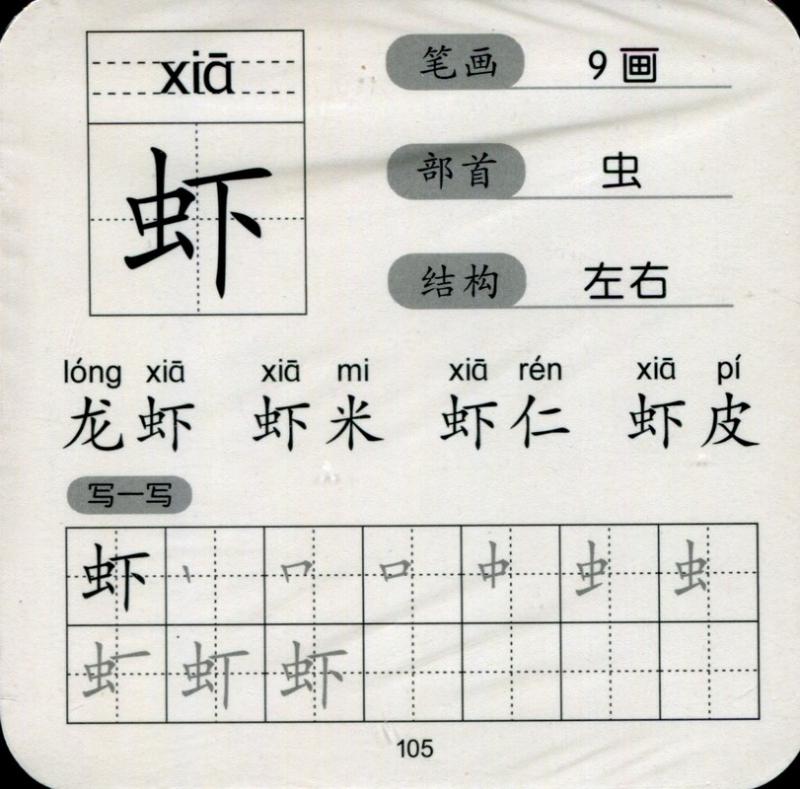 xiā
虾
笔画 9画
部首 虫
结构 左右
lóng xiā xiā mi xiā rén xiā pí
龙虾 虾米 虾仁 虾皮
写一写
虾 丶 𠃍 口 中 虫 虫
虾 虾 虾
105